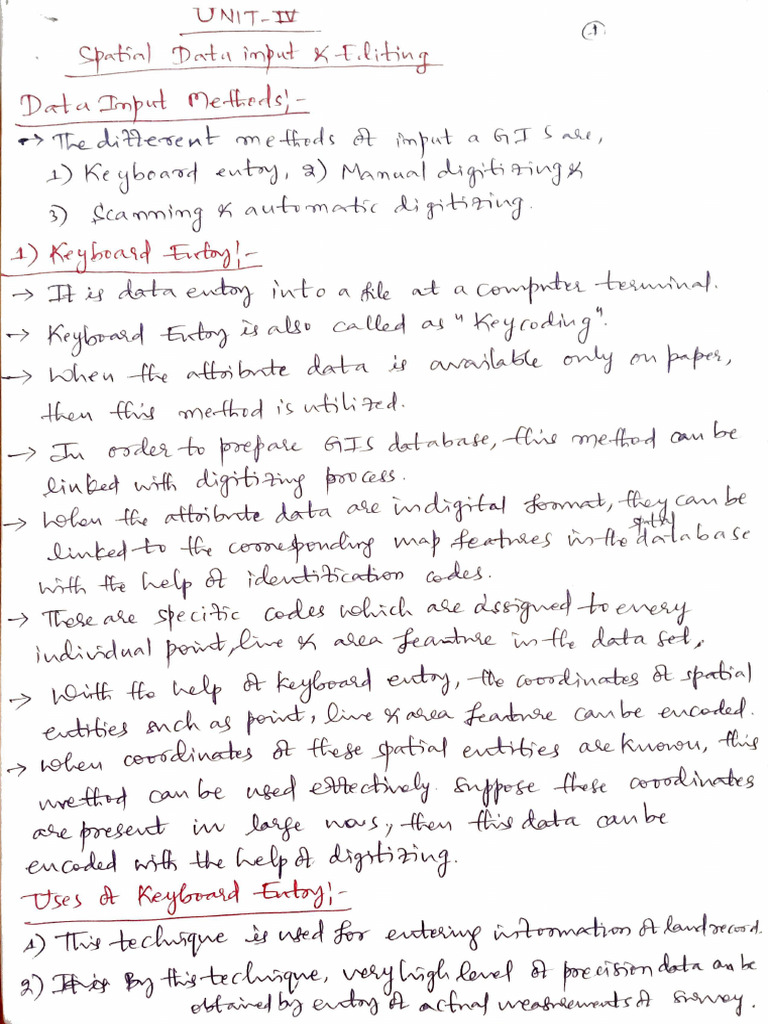 UNIT-IV
1
Spatial Data input & Editing
Data Input Methods:-
→ The different methods of input a GIS are,
1) Keyboard entry, 2) Manual digitizing &
3) Scanning & automatic digitizing.
1) Keyboard Entry:-
→ It is data entry into a file at a computer terminal.
→ Keyboard Entry is also called as "Keycoding".
→ When the attribute data is available only on paper,
then this method is utilized.
→ In order to prepare GIS database, this method can be
linked with digitizing process.
→ When the attribute data are in digital format, they can be
linked to the corresponding map features in the spatial database
with the help of identification codes.
→ These are specific codes which are assigned to every
individual point, line & area feature in the data set,
→ With the help of keyboard entry, the coordinates of spatial
entities such as point, line & area feature can be encoded.
→ When coordinates of these spatial entities are known, this
method can be used effectively. Suppose these coordinates
are present in large nos, then this data can be
encoded with the help of digitizing.
Uses of Keyboard Entry:-
1) This technique is used for entering information of land record.
2) By this technique, very high level of precision data can be
obtained by entry of actual measurements of survey.